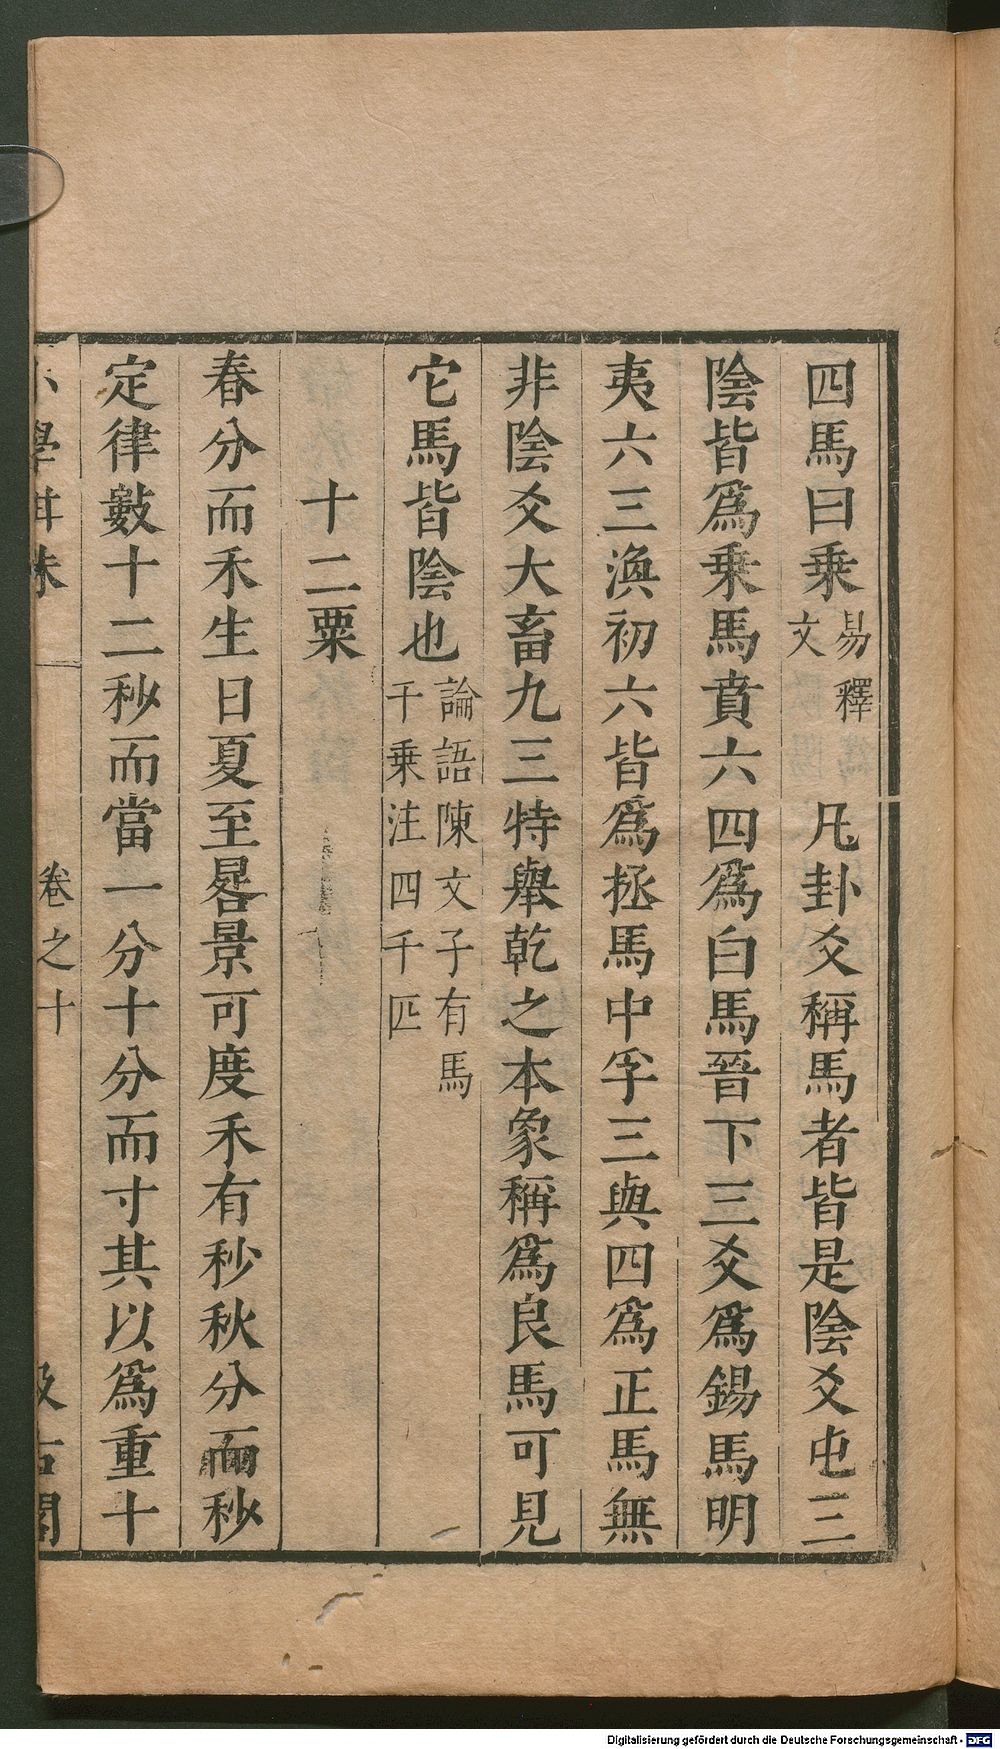 四馬曰乗易釋文　凡卦爻稱馬者皆是陰爻屯三
陰皆爲乗馬賁六四爲白馬晉下三爻爲錫馬明
夷六三渙初六皆爲拯馬中孚三與四爲正馬無
非陰爻大畜九三特舉乾之本象稱爲良馬可見
它馬皆陰也論語陳文子有馬千乗注四千匹
十二粟
春分而禾生日夏至晷景可度禾有秒秋分而秒
定律數十二秒而當一分十分而寸其以爲重十
學
卷之十
Digitalisierung gefördert durch die Deutsche Forschungsgemeinschaft - DFG